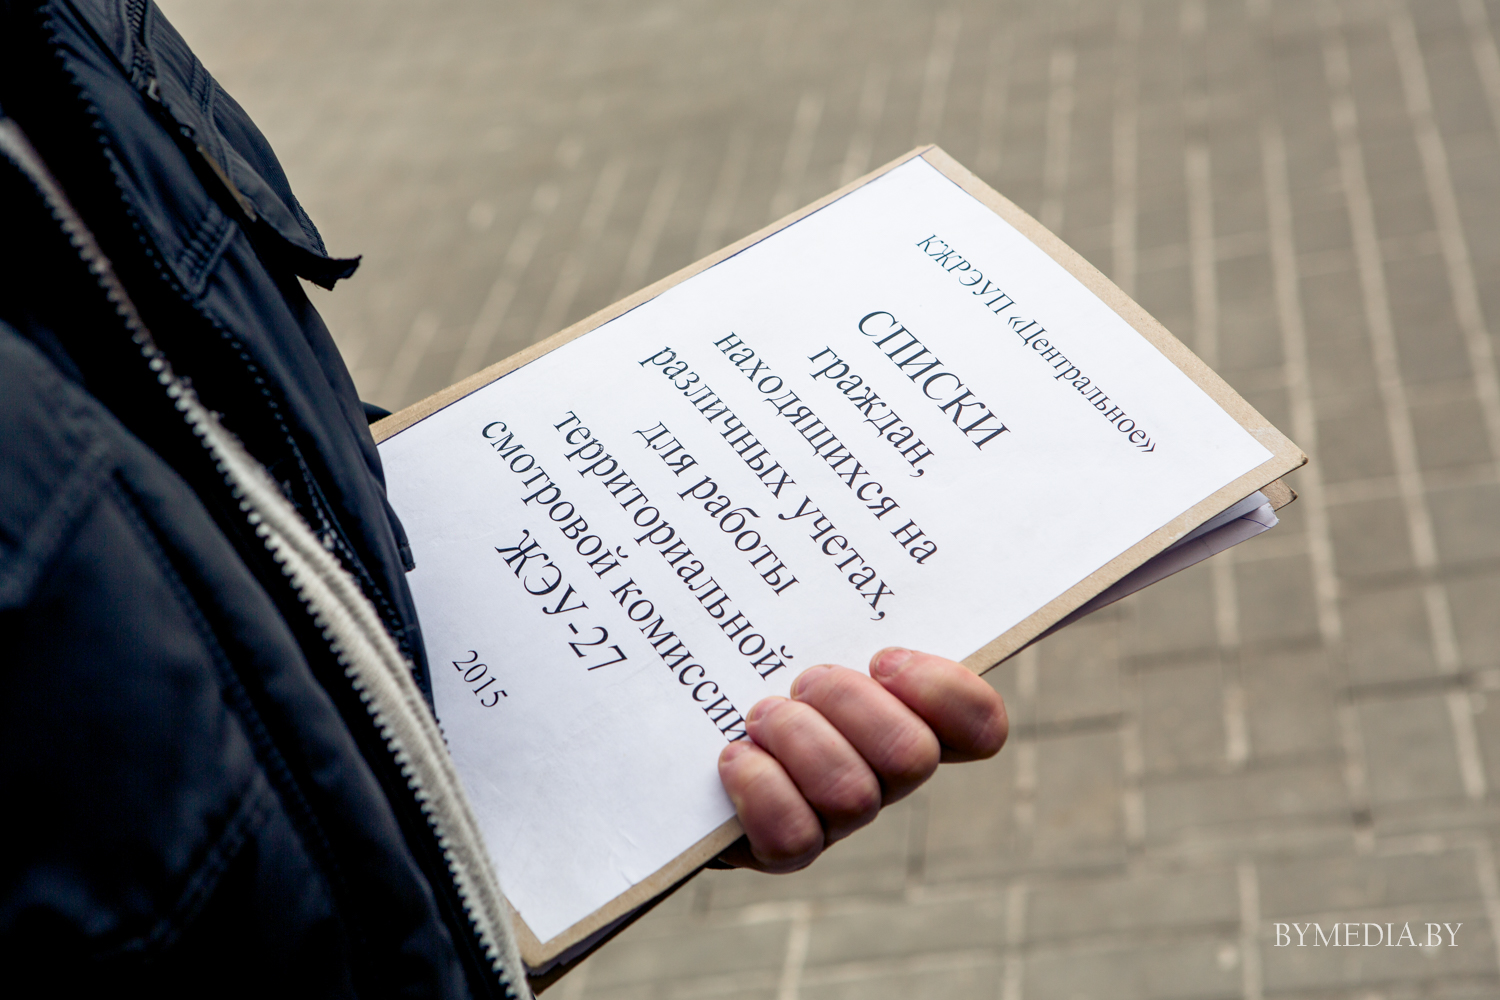 КЖРЭУП «Центральное»
СПИСКИ
граждан,
находящихся на
различных учетах,
для работы
территориальной
смотровой комиссии
ЖЭУ-27
2015
BYMEDIA.BY